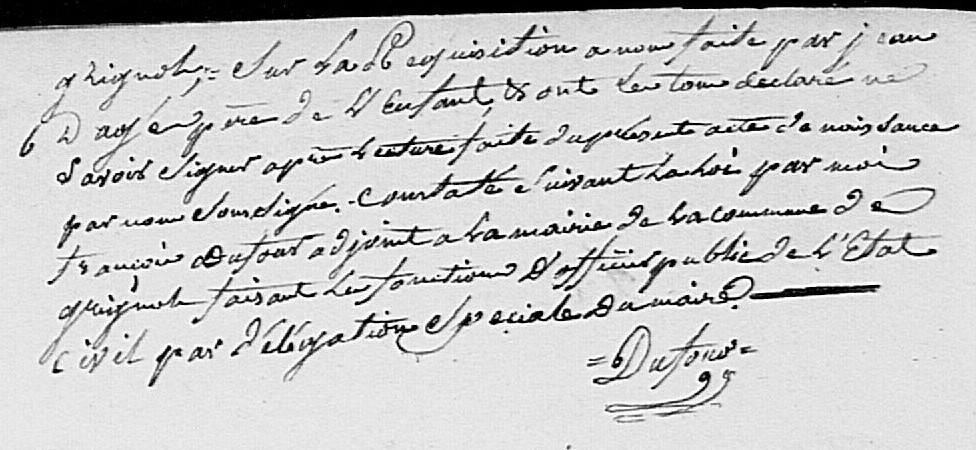 grignols; = Sur La Requisition a nous faite par jean
Dagen père de L'Enfant, & ont Les tous declaré ne
Savoir Signer après Lecture faite du présent acte de naissance
par nous Soussigne. Constaté Suivant La Loi par moi
françois Dufour adjoint a La mairie de La commune de
grignols faisant Les fonctions D'officier public de L'Etat
Civil par délégation Speciale Du maire
= Dufour =